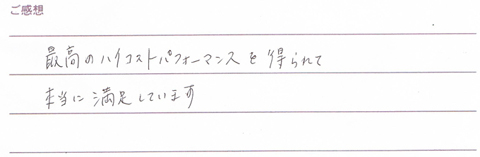 ご感想
最高のハイコストパフォーマンスを得られて
本当に満足しています